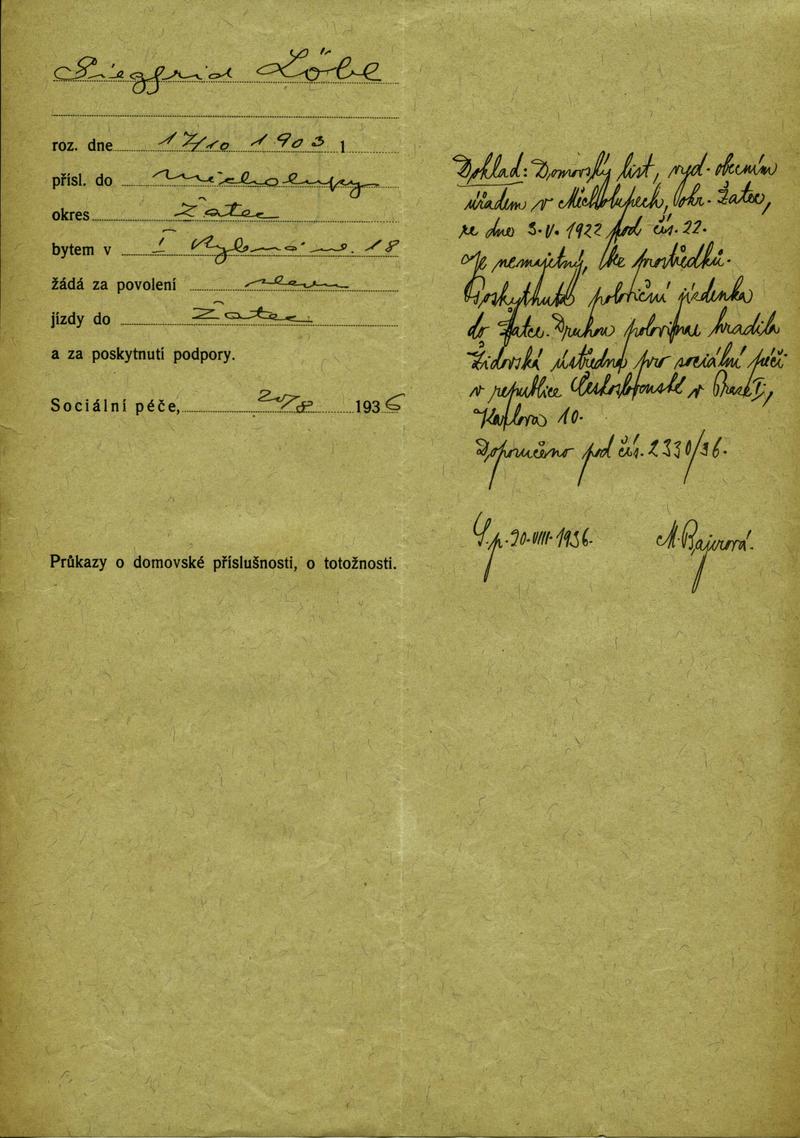 Siegfried Löbl
roz. dne 17/10 1903 1
přísl. do Michelupy
okres Žatec
bytem v I 18
žádá za povolení
jízdy do Žatec
a za poskytnutí podpory.
Sociální péče, 20/8 1936
Průkazy o domovské příslušnosti, o totožnosti.
Doklad: Domovský list, vyd. obecním
úřadem v Michelupech, okr. Žatec,
ze dne 3.V. 1922 pod čís. 22.
Je nemajetný, bez prostředků.
Poskytnuta poloviční jízdenka
do Žatec. Druhou polovinu hradila
Židovská ústředna pro sociální péči
v republice Československé v Praze I,
10.
Doporučeno pod čís. 2330/36.
20.VIII.1936.